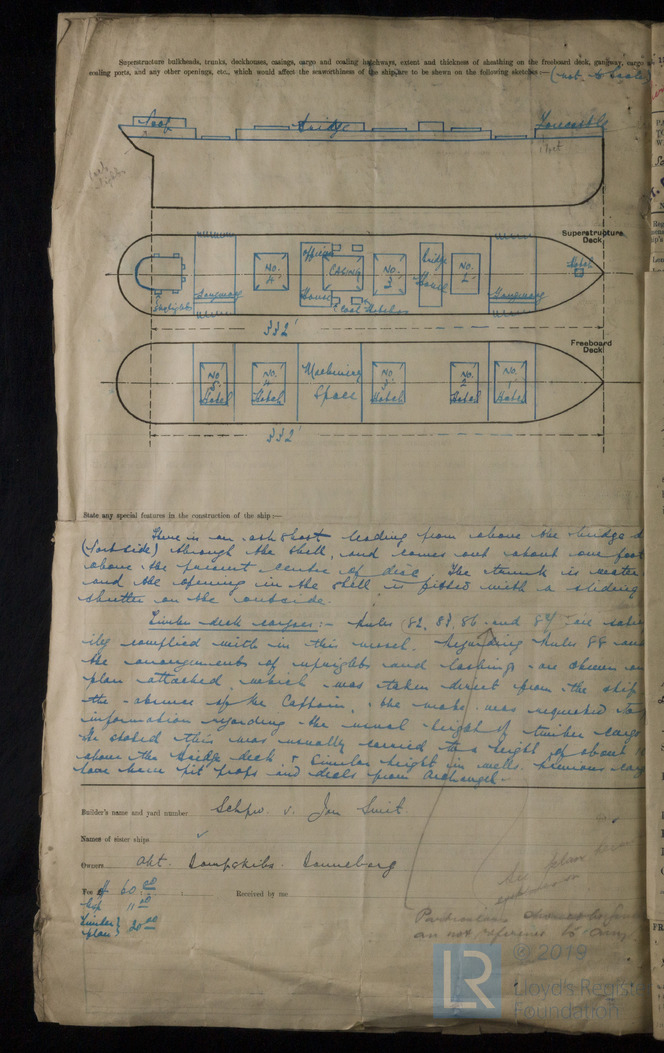 Superstructure bulkheads, trunks, deckhouses, casings, cargo and coaling hatchways, extent and thickness of sheathing on the freeboard deck, gangway, cargo
coaling ports, and any other openings, etc., which would affect the seaworthiness of the ship, are to be shown on the following sketches :— (not to scale)
Poof Bridge Forecastle
Superstructure
Deck
Officers House
No. 4
CASING
No. 3
Bridge House
No. 2
Hatch
Skylights
Tonnage
Coal Hatches
Tonnage
332'
Freeboard
Deck
No. 5 Hatch
No. 4 Hatch
Machinery Space
No. 3 Hatch
No. 2 Hatch
No. 1 Hatch
332'
State any special features in the construction of the ship :—
There is an ash shoot leading from above the bridge d
(Port side) through the shell, and comes out about one foot
above the present centre of disc. The trunk is water
and the opening in the shell is fitted with a sliding
shutter on the outside.
Timber deck cargoes :- Rules 82, 83, 86 and 87 are satis
ily complied with in this vessel. Regarding Rules 88 and
the arrangements of uprights and lashings are shown on
plan attached which was taken direct from the ship
the absence of the Captain, the mate was requested to
information regarding the usual height of timber cargo
He stated this was usually carried to a height of about
above the bridge deck & similar height in wells. Previous carg
have been pit props and deals from Archangel.
Builder's name and yard number Schpw. v. Jan Smit.
Names of sister ships
Owners Akt. Dampskibs. Danneborg
Fee 60
Exp 11
Timber plan 20
Received by me
Particulars
are not reference to any
LR
© 2019
Lloyd's Registe
Foundation